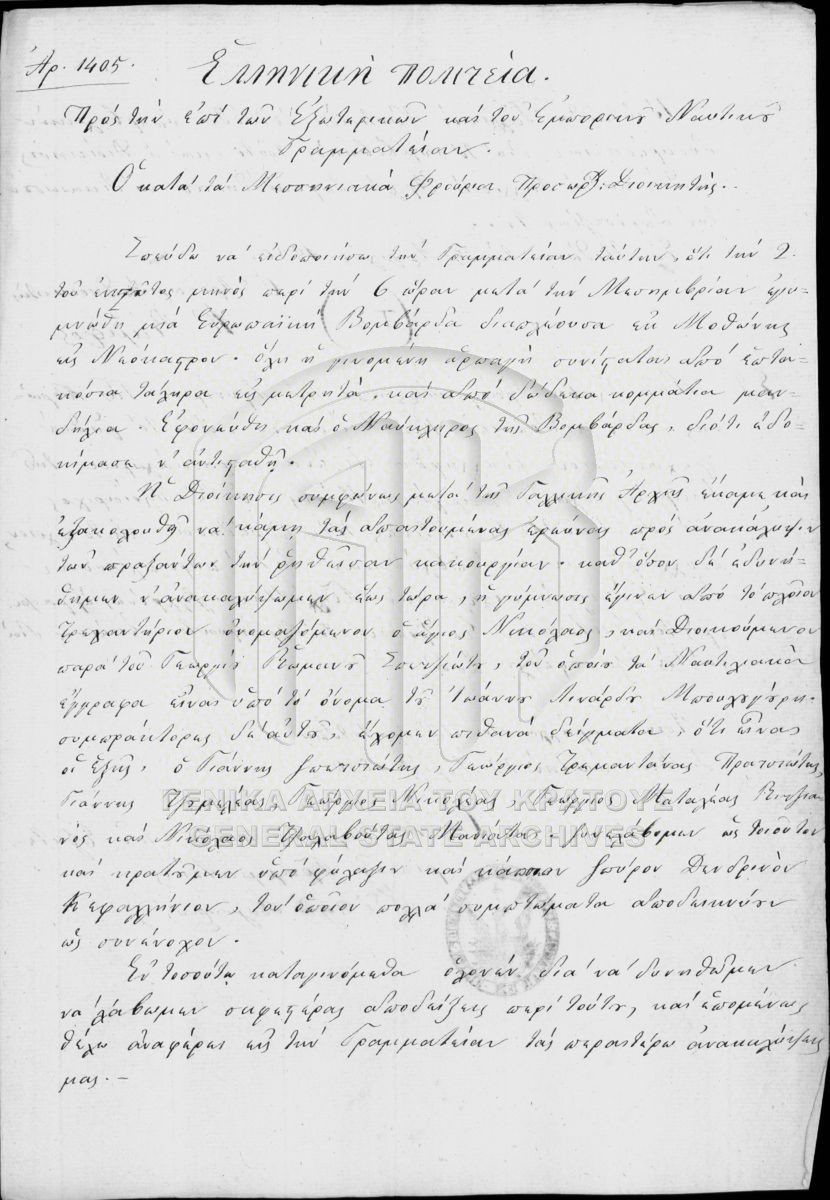 Ἀρ. 1405.
Ἑλληνικὴ Πολιτεία.
Πρὸς τὴν ἐπὶ τῶν Ἐξωτερικῶν καὶ τοῦ Ἐμπορικοῦ Ναυτικοῦ
Γραμματείαν.
Ὁ κατὰ τὰ Μεσσηνιακὰ Φρούρια Προσωρ: Διοικητής.
Σπεύδω νὰ εἰδοποιήσω τὴν Γραμματείαν ταύτην, ὅτι τὴν 2.
τοῦ ἐνεστῶτος μηνὸς περὶ τὴν 6 ὥραν μετὰ τὴν Μεσημβρίαν ἐγυ-
μνώθη μιὰ Εὐρωπαϊκὴ Βομβάρδα διαπλέουσα ἐκ Μοθώνης
εἰς Νεόκαστρον. ὅλη ἡ γινομένη ἁρπαγὴ συνίσταται ἀπὸ ἑπτα-
κόσια τάληρα εἰς μετρητὰ, καὶ ἀπὸ δώδεκα κομμάτια μαν-
δήλια. Ἐφονεύθη καὶ ὁ Ναύκληρος τῆς Βομβάρδας, διότι ἐδο-
κίμασε ν' ἀντισταθῇ.
Ἡ Διοίκησις συμφώνως μετὰ τῆς Γαλλικῆς Ἀρχῆς ἔκαμε καὶ
ἐξακολουθεῖ νὰ κάμῃ τὰς ἀπαιτουμένας ἐρεύνας πρὸς ἀνακάλυψιν
τῶν πραξάντων τὴν ῥηθεῖσαν κακουργίαν. καθ' ὅσον δὲ ἐδυνή-
θημεν ν' ἀνακαλύψωμεν ἕως τώρα, ἡ γύμνωσις ἔγινεν ἀπὸ τὸ πλοῖον
τρεχαντήριον ὀνομαζόμενον ὁ ἅγιος Νικόλαος, καὶ Διοικούμενον
παρὰ τοῦ Γεωργίου Σπετζιώτου, τοῦ ὁποίου τὰ Ναυτιλιακὰ
ἔγγραφα εἶναι ὑπὸ τὸ ὄνομα τοῦ Ἰωάννου Λινάρδου
συμπράκτορας δὲ αὐτοῦ, ἔχομεν πιθανὰ δείγματα, ὅτι εἶναι
οἱ ἑξῆς, ὁ Γιάννης Σπετσιώτης, Γεώργιος Τραμαντάνας
Γιάννης Γεώργιος Νικολέας, Γεώργιος Ματαλέας
νὸς καὶ Νικόλαος Μανιάτης. Συνελάβομεν ὡς τοιοῦτον
καὶ κρατοῦμεν ὑπὸ φύλαξιν καὶ κάποιον Σπύρον Δενδρινὸν
Κεφαλλήνιον, τὸν ὁποῖον πολλὰ συμπτώματα ἀποδεικνύουν
ὡς συνένοχον.
Ἐν τοσούτῳ καταγινόμεθα ὁλονὲν διὰ νὰ δυνηθῶμεν
νὰ λάβωμεν σαφεστέρας ἀποδείξεις περὶ τούτου, καὶ ἑπομένως
θέλω ἀναφέρει εἰς τὴν Γραμματείαν τὰς περαιτέρω ἀνακαλύψεις
μας.—
ΓΕΝΙΚΑ ΑΡΧΕΙΑ ΤΟΥ ΚΡΑΤΟΥΣ
GENERAL STATE ARCHIVES